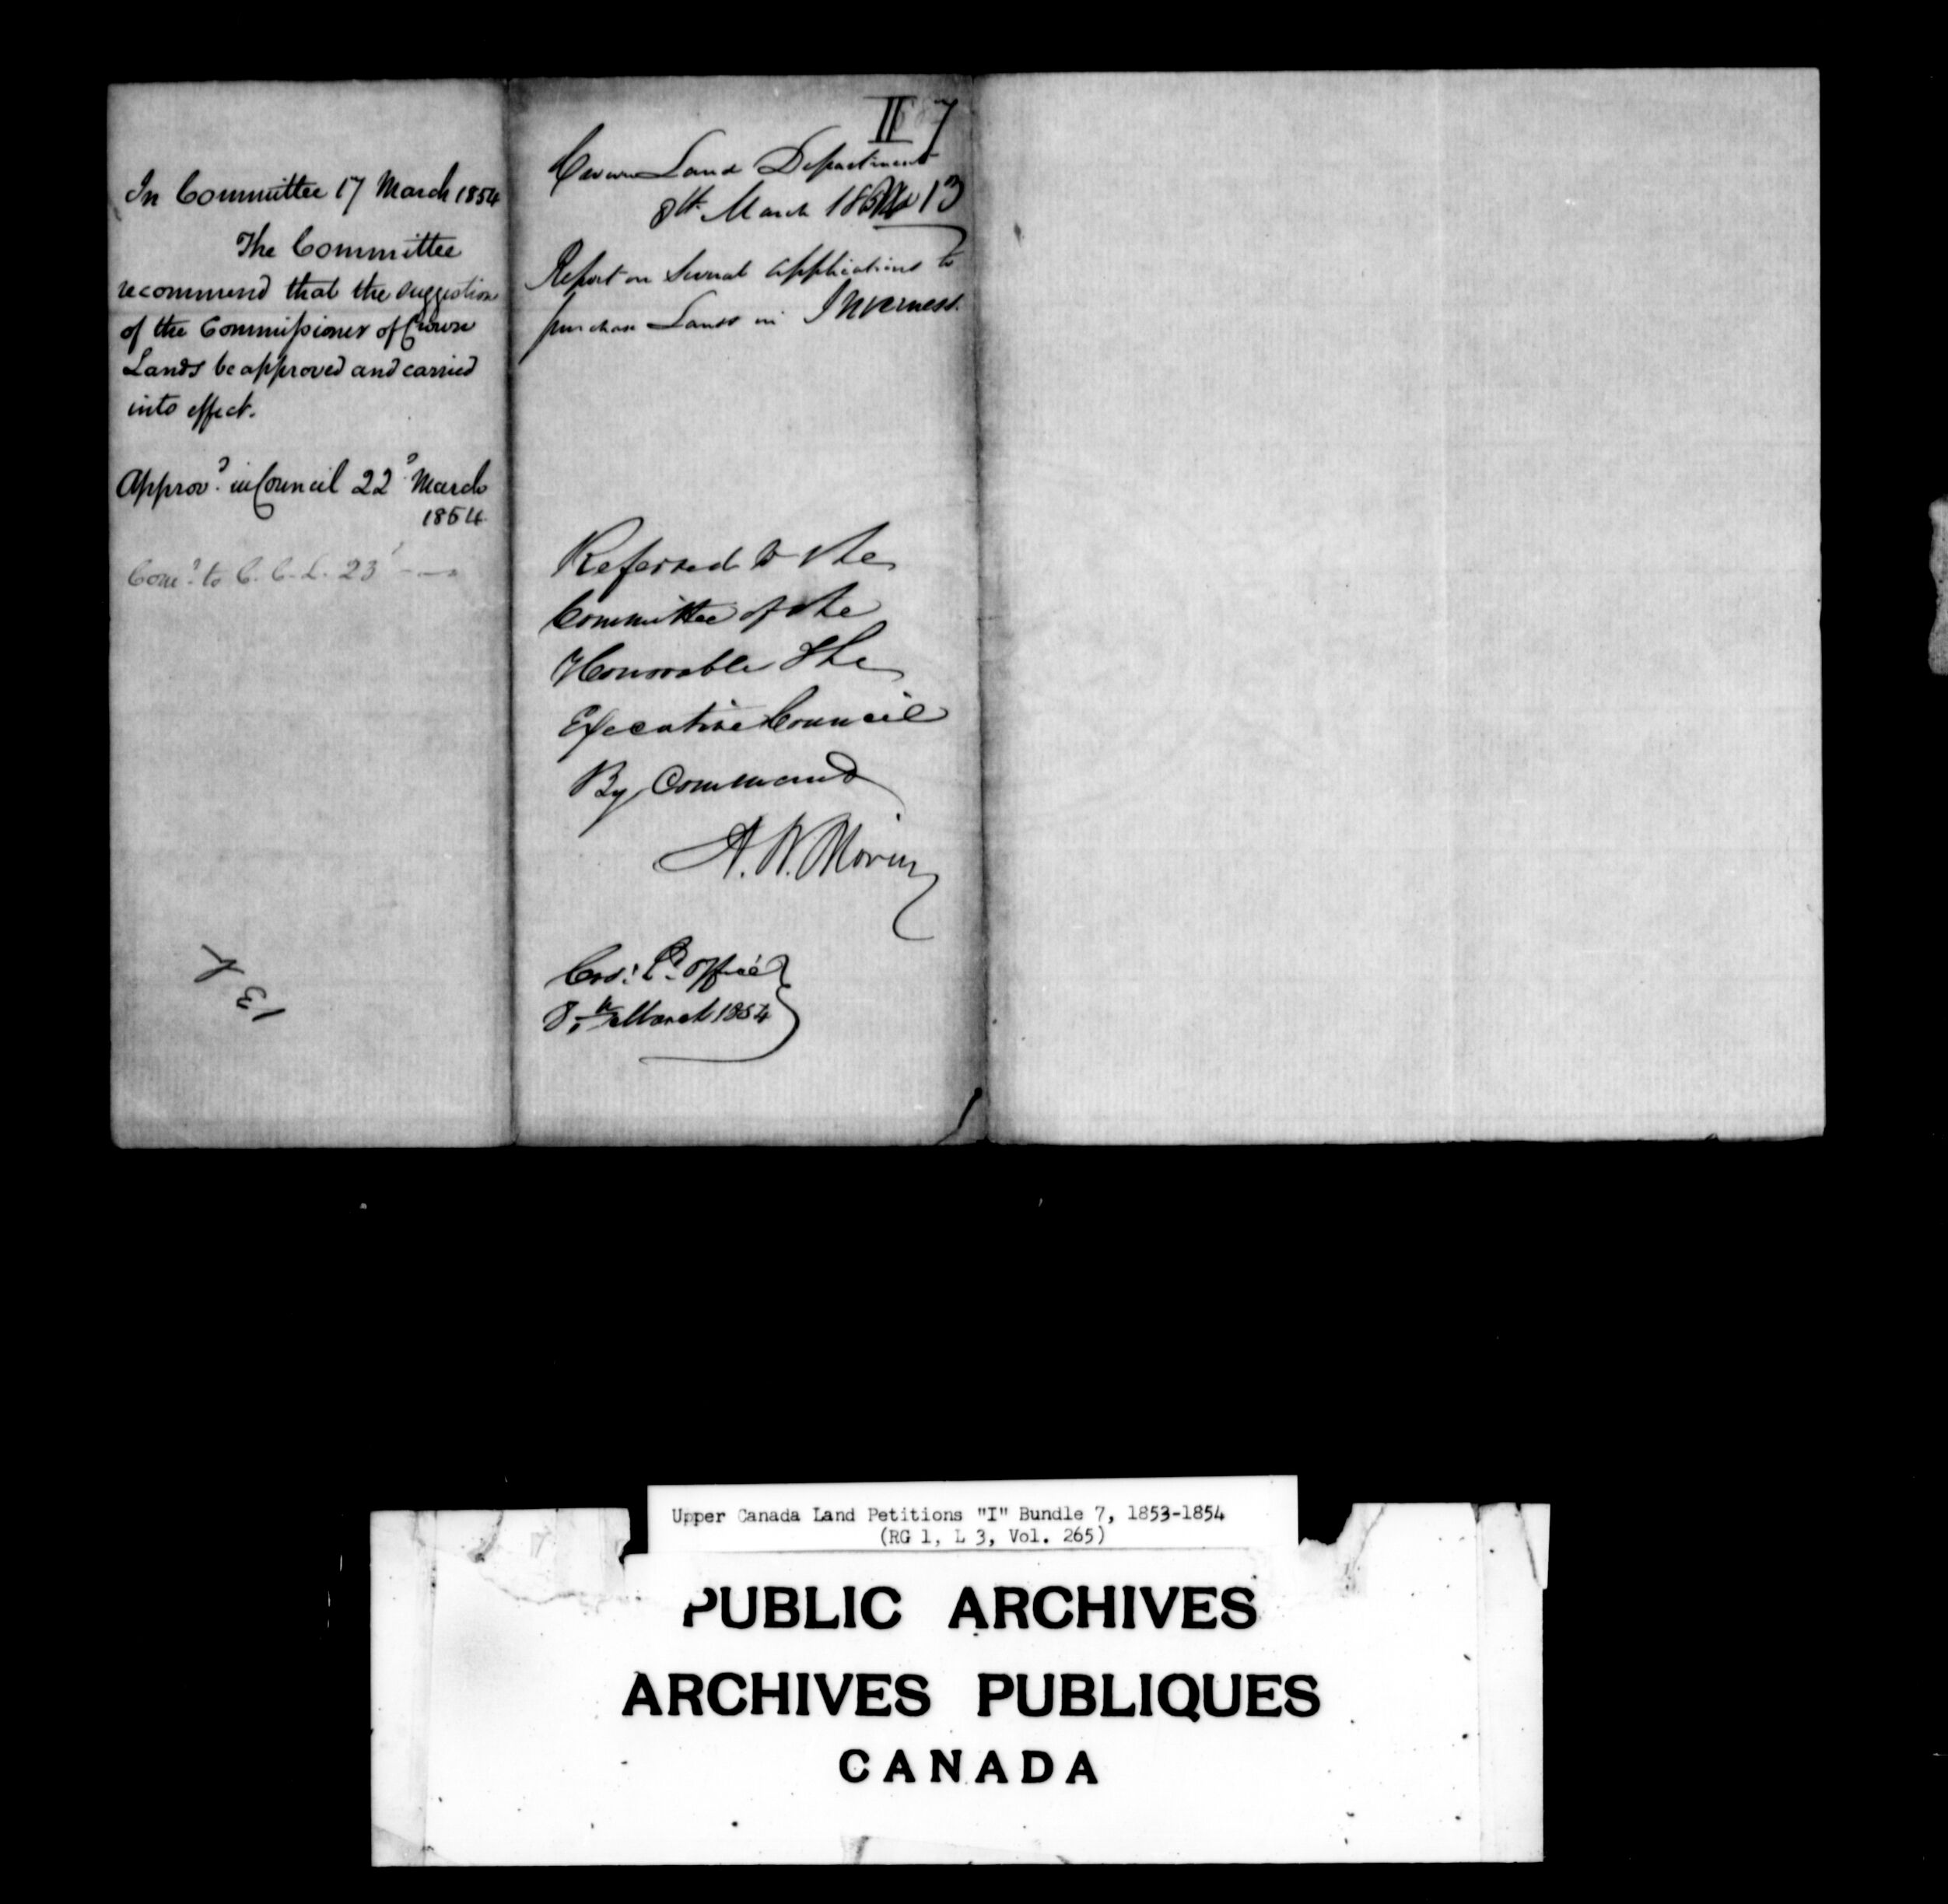 In Committee 17 March 1854
The Committee
recommend that the suggestions
of the Commissioner of Crown
Lands be approved and carried
into effect.
Approv.d in Council 22.d March
1854
Com.d to C. C. L. 23
13
II 7
Crown Land Department
8th March No 13
Report on several applications to
purchase Lands in Inverness.
Referred to the
Committee of the
Honorable The
Executive Council
By Command
A. N. Morin
Office
8th March 1854
Upper Canada Land Petitions "I" Bundle 7, 1853-1854
(RG 1, L 3, Vol. 265)
PUBLIC ARCHIVES
ARCHIVES PUBLIQUES
CANADA